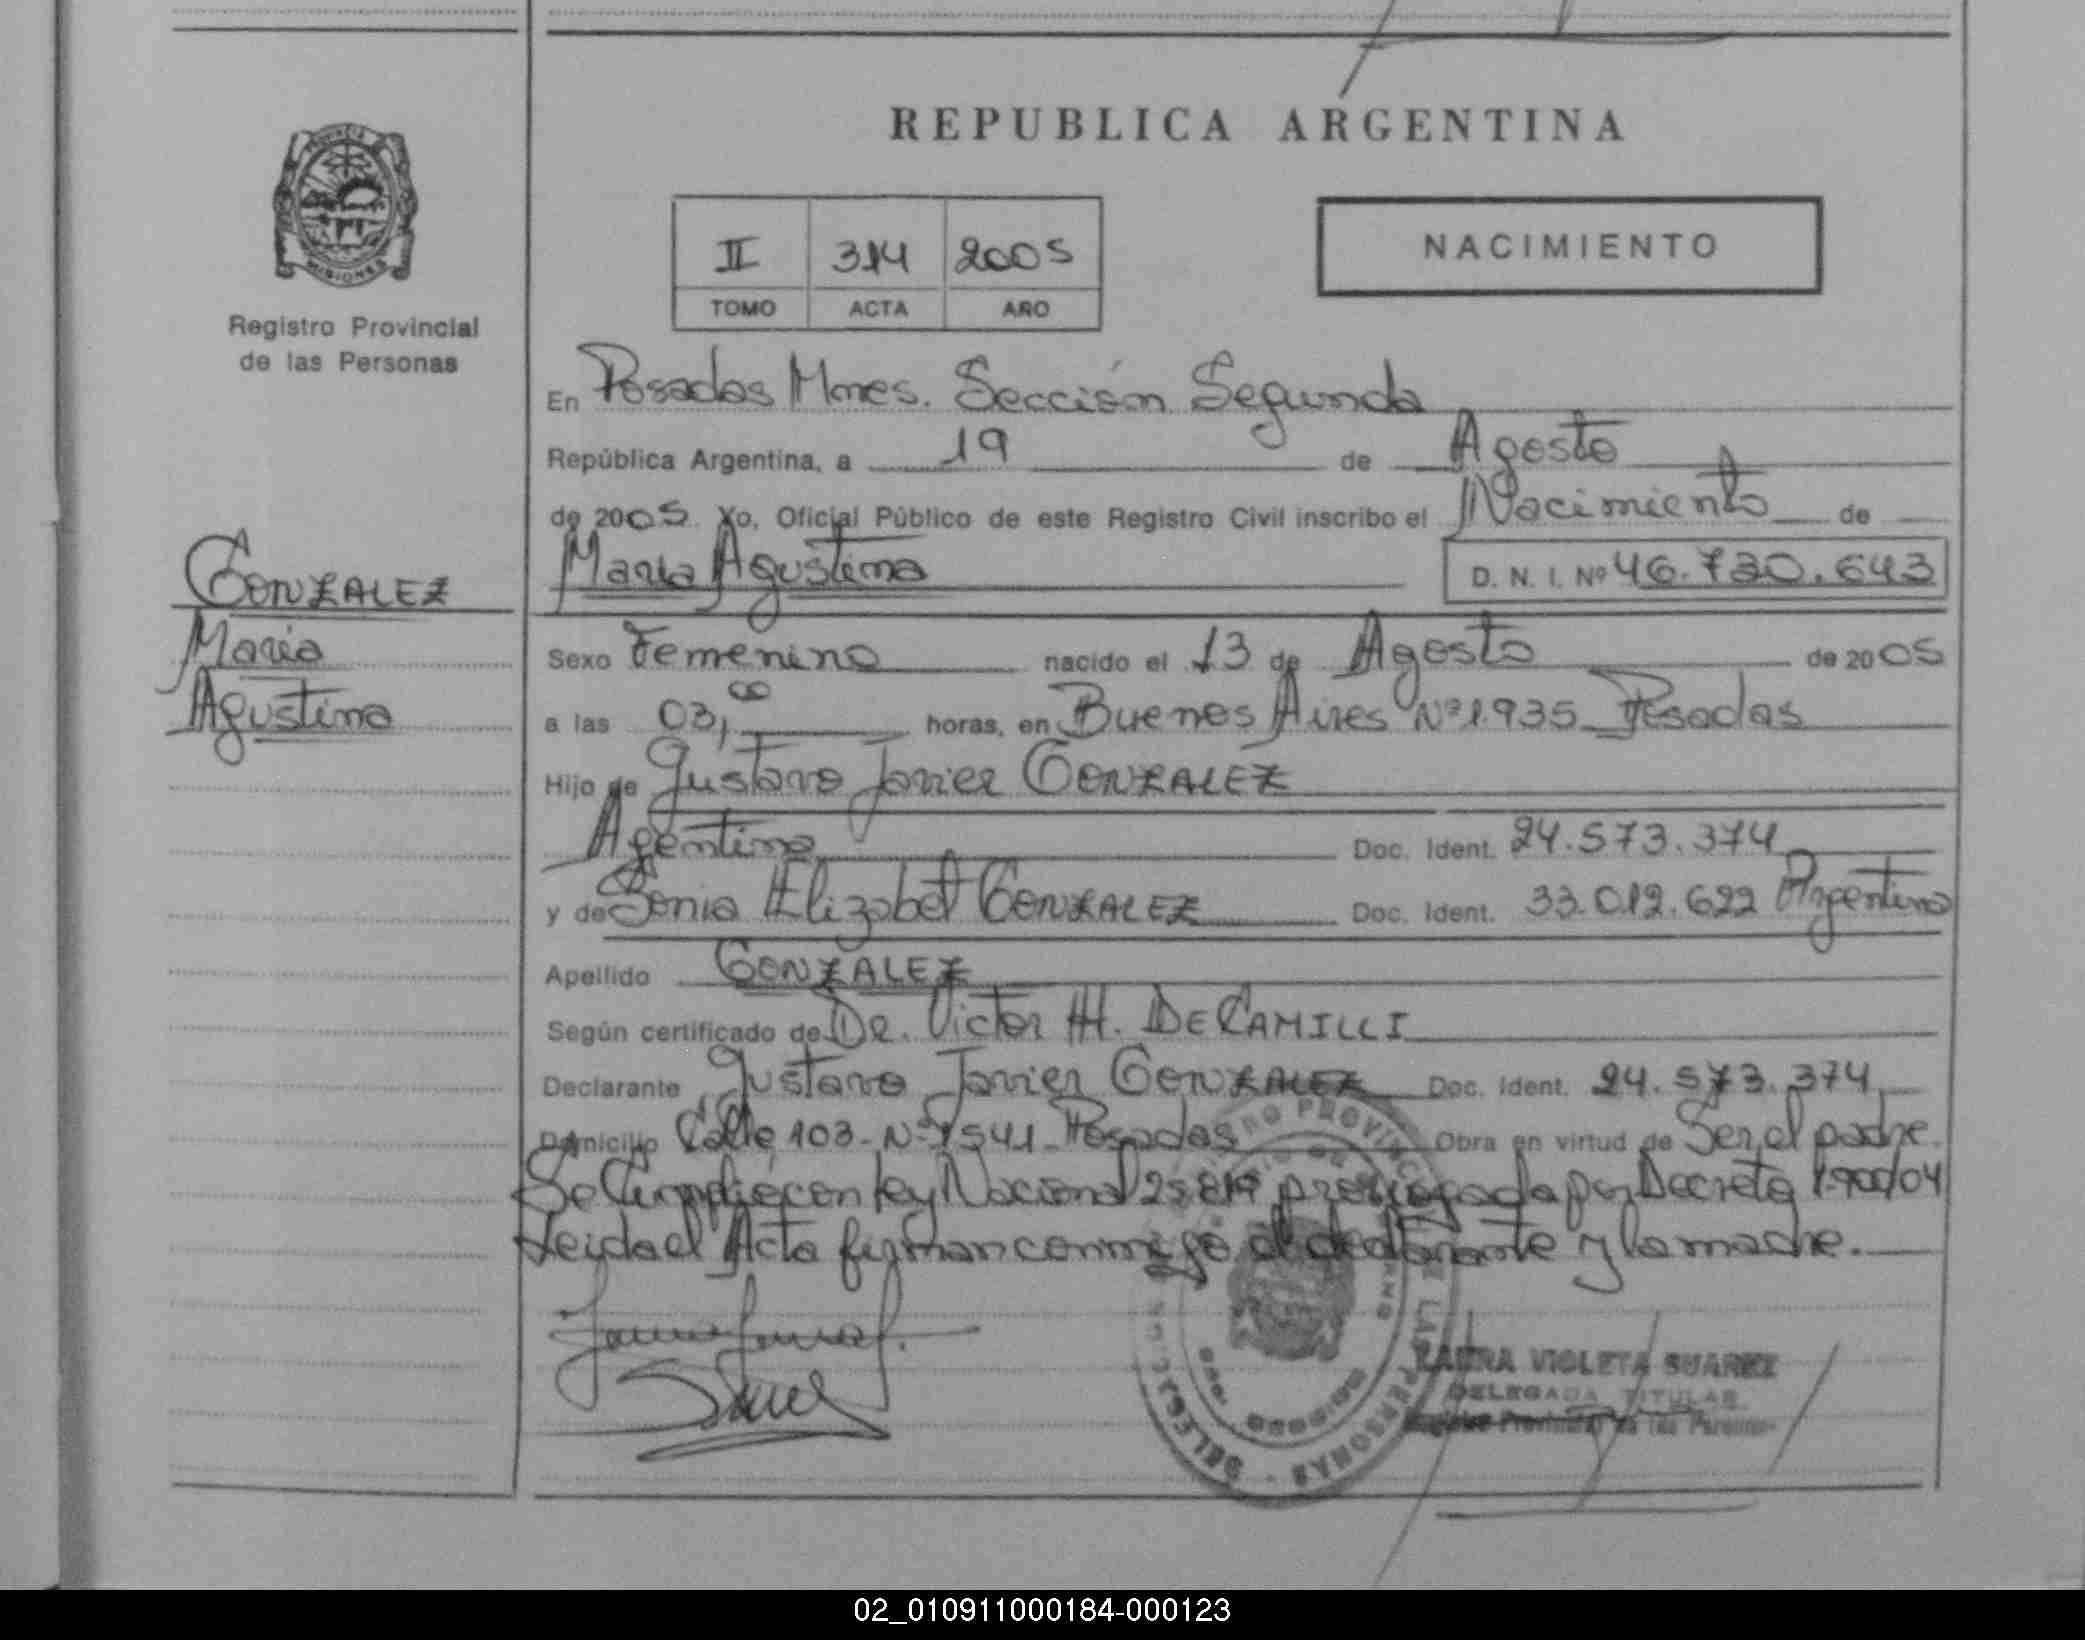 REPUBLICA ARGENTINA
PROVINCIA
MISIONES
Registro Provincial
de las Personas
II 314 2005
TOMO ACTA AÑO
NACIMIENTO
En Posadas Mnes. Sección Segunda
República Argentina, a 19 de Agosto
de 2005. Yo, Oficial Público de este Registro Civil inscribo el Nacimiento de
Maria Agustina D. N. I. Nº 46.730.643
GONZALEZ
Maria
Agustina
Sexo Femenino nacido el 13 de Agosto de 2005
a las 03,00 horas, en Buenos Aires Nº 1935 Posadas
Hijo de Gustavo Javier GONZALEZ
Agentina Doc. Ident. 24.573.374
y de Sonia Elizabet GONZALEZ Doc. Ident. 33.012.622 Argentina
Apellido GONZALEZ
Según certificado de Dr. Victor H. DE CAMILLI
Declarante Gustavo Javier GONZALEZ Doc. Ident. 24.573.374
Domicilio Calle 103 - Nº 1541 - Posadas Obra en virtud de Ser el padre
Se Cumplió con Ley Nacional 25819 prorrogada por Decreto 1900/04
Leida el Acta firman conmigo el declarante y la madre.
LAURA VIOLETA SUAREZ
DELEGADA TITULAR
Registro Provincial de las Personas
02_010911000184-000123